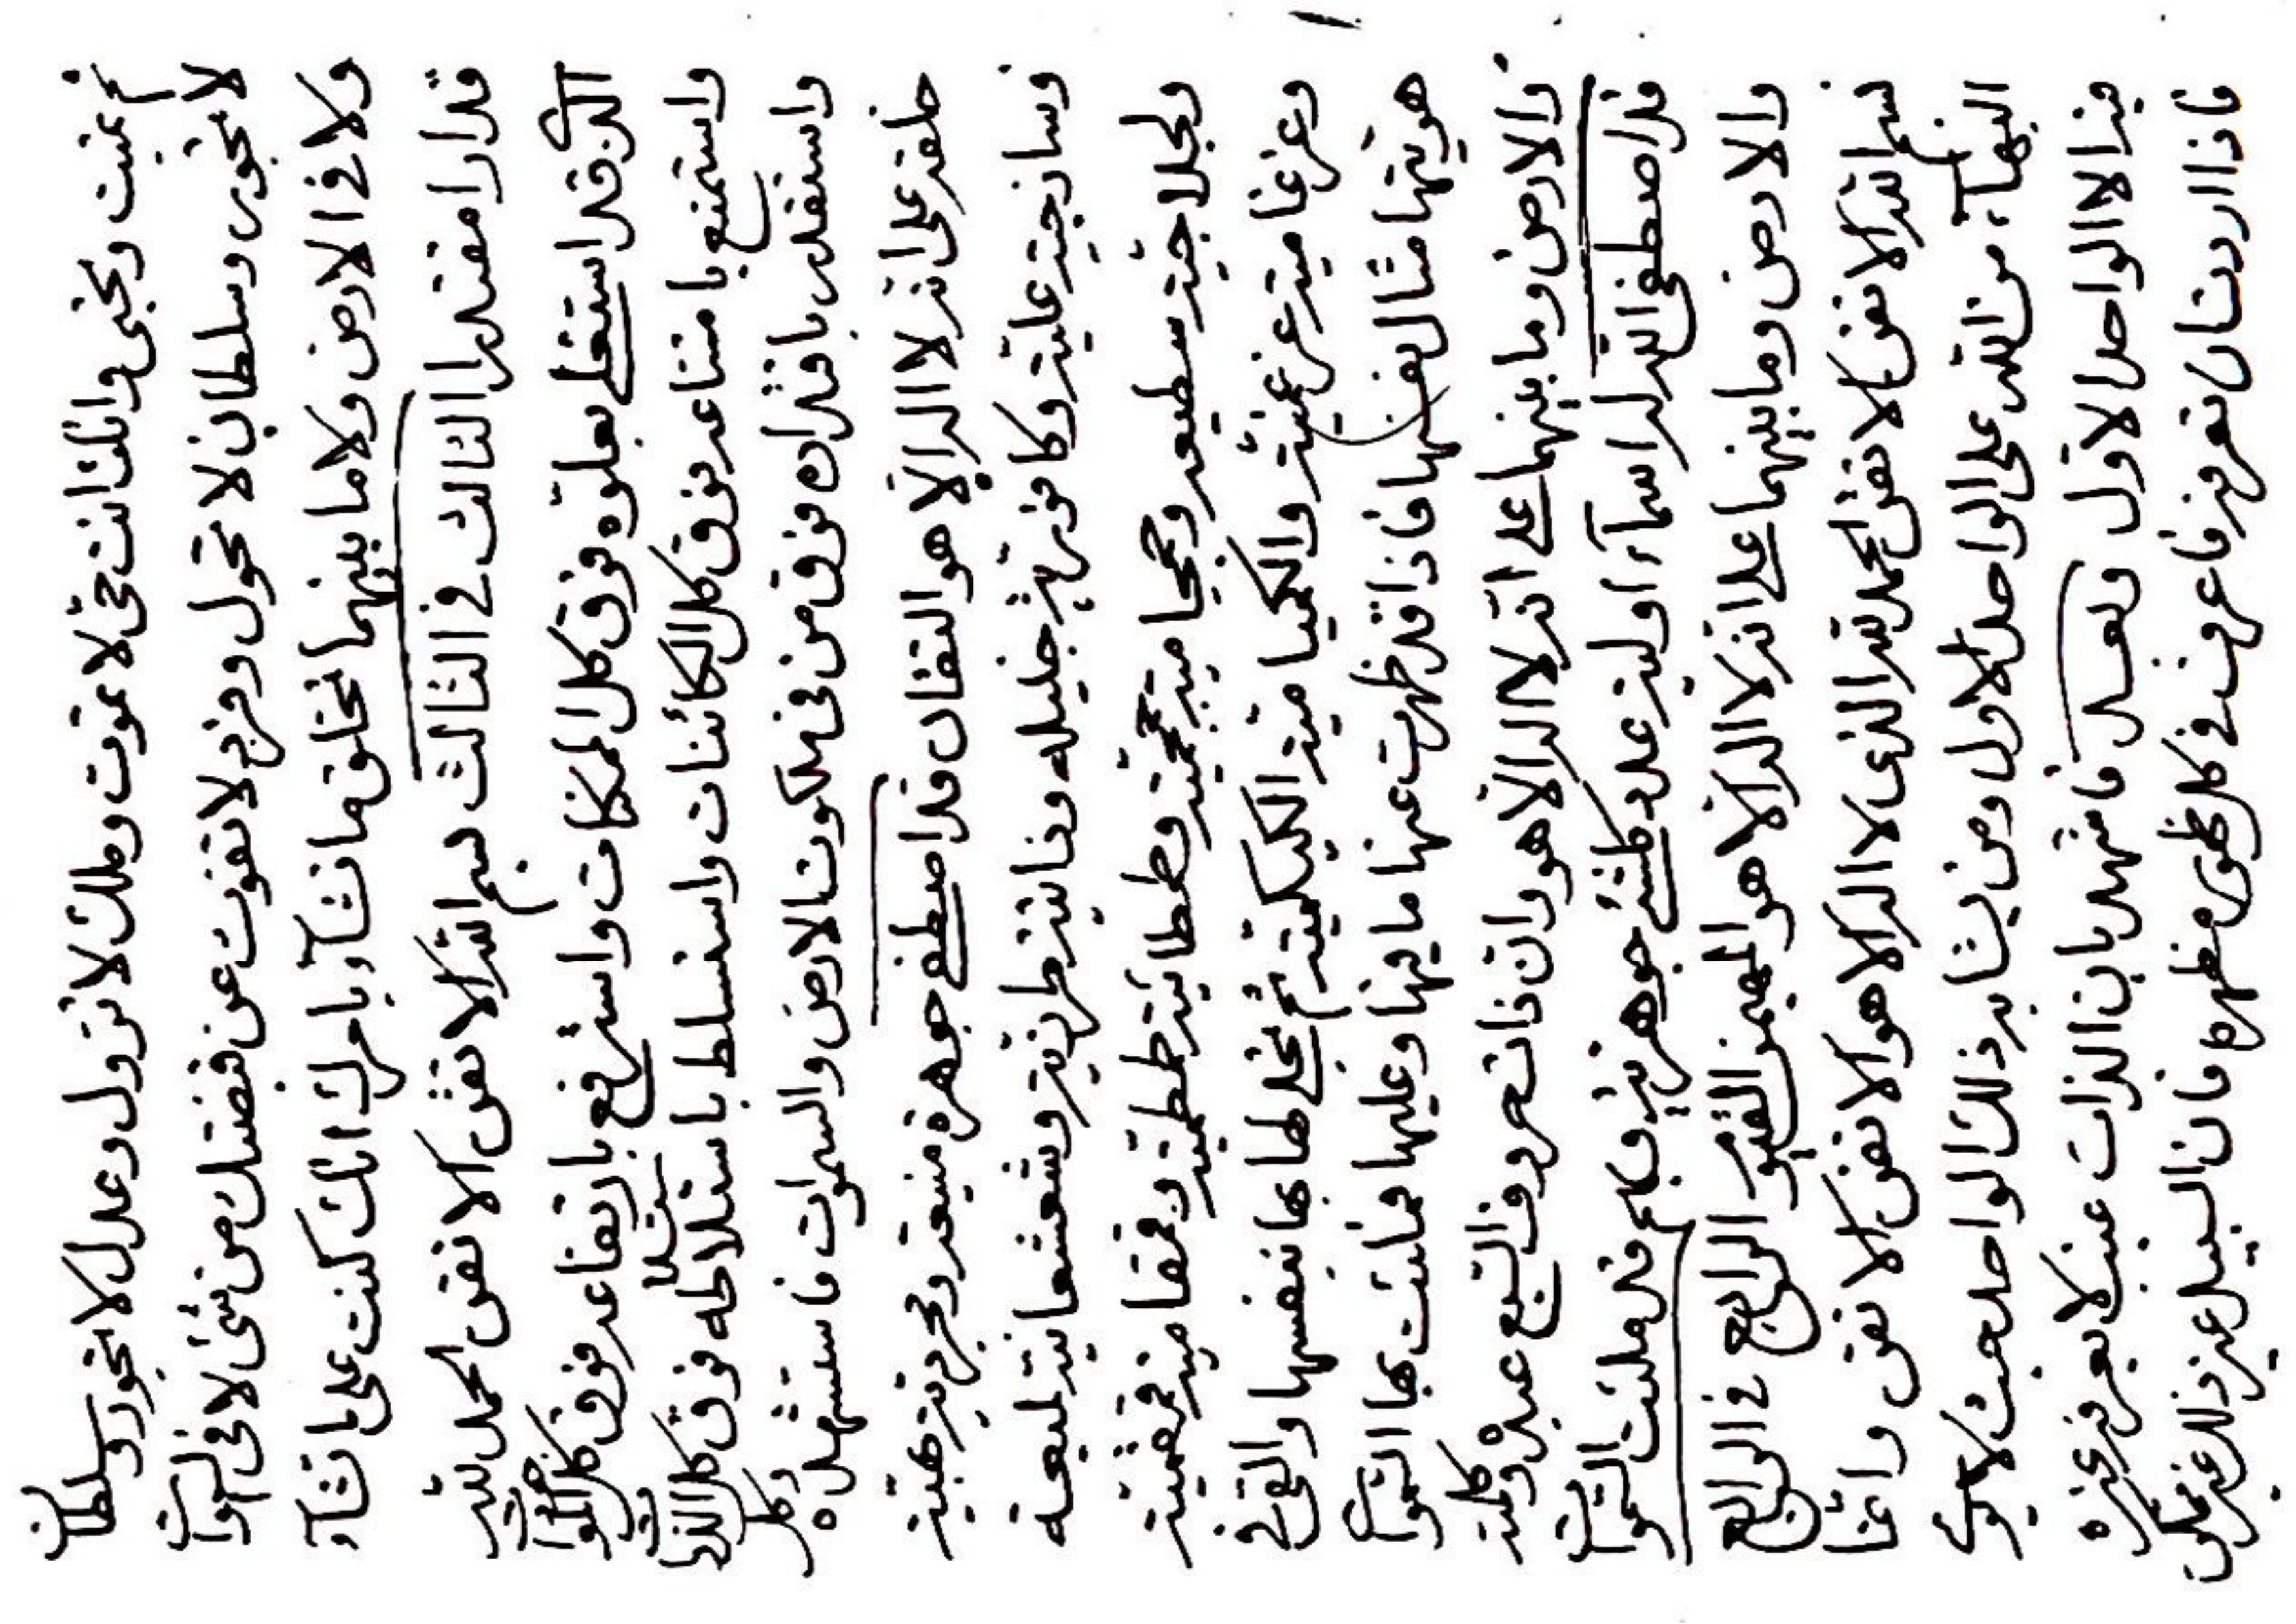 ثم تميت وتحيى وانك انت حى لا تموت وملك لا تزول وعدل لا تجور وسلطان
لا تجور وسلطان لا تحول وفرد لا تفوت عن قبضتك من شئ لا فى السموات
ولا فى الارض ولا ما بينهما تخلق ما تشآء بامرك انك كنت على ما تشآء
قدارا مقتدرا الثالث فى الثالث بسم الله الامنع الامنع الحمد لله
الذى قد استعلى بعلوه فوق كل الممكنات واسترفع بارتفاعه فوق كل الموجودات
واستمنع بامتناعه فوق كل الكائنات واستسلط باستلاطه فوق كل الذرات
واستقدر باقتداره فوق من فى ملكوت الارض والسموات فاستشهده وكل
خلقه على انه لا اله الا هو المتعال قد اصطفى جوهرة منيعة ومجردية بهية
وساذجية علية وكافورية جليله وذاتية طرزية وشعشعانية لميعة
وجلاجية سطيعة ومحيا مية محمية وطمطامية طمطمية وقمقامية قمقمية
وعزغامية عزغمية والكيامية الكيكمية ثم تجلى لها بها بنفسها والقى فى
هويتها مثال نفسها فاذا قد ظهرت عنها ما فيها وعليها فملئت بها السموات
والارض وما بينهما على انه لا اله الا هو وان ذات حروف السبع عبده وكلمته
قد اصطفى الله له اسمآء اولية عدد كلشئ جوهرية وبهم قد ملئت السموات
والارض وما بينهما على انه لا اله الا هو المهيمن القيوم الرابع فى الرابع
بسم الله الامنع الامنع الحمد لله الذى لا اله الا هو الامنع الامنع وانما
البهآء من الله على الواحد الاول ومن يشابه ذلك الواحد حيث لا يرى
فيه الا الواحد الاول وبعد فاشهد بان الذات غيب لا يعرفه غيره
فاذا اردت ان تعرفه فاعرف فى كل ظهور مظهره فان السبيل غير ذلك غير ممكن